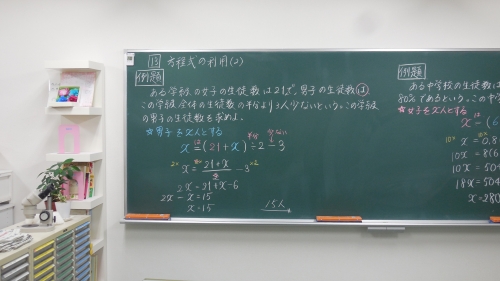 13 方程式の利用(2)
例題
ある学級の女子の生徒数は21で、男子の生徒数は
この学級全体の生徒数の半分より3人少ないという。この学級
の男子の生徒数を求めよ。
★男子をx人とする
半分 少ない
x = (21+x)÷2-3
x = 21+x/2 -3
2x = 21+x-6
2x - x = 15
x = 15
15人
例題
ある中学校の生徒数
80%であるという。この中
★女子をx人とする
x = (6
x = 0.8
10x = 8(6
10x = 504
18x = 504
x = 280